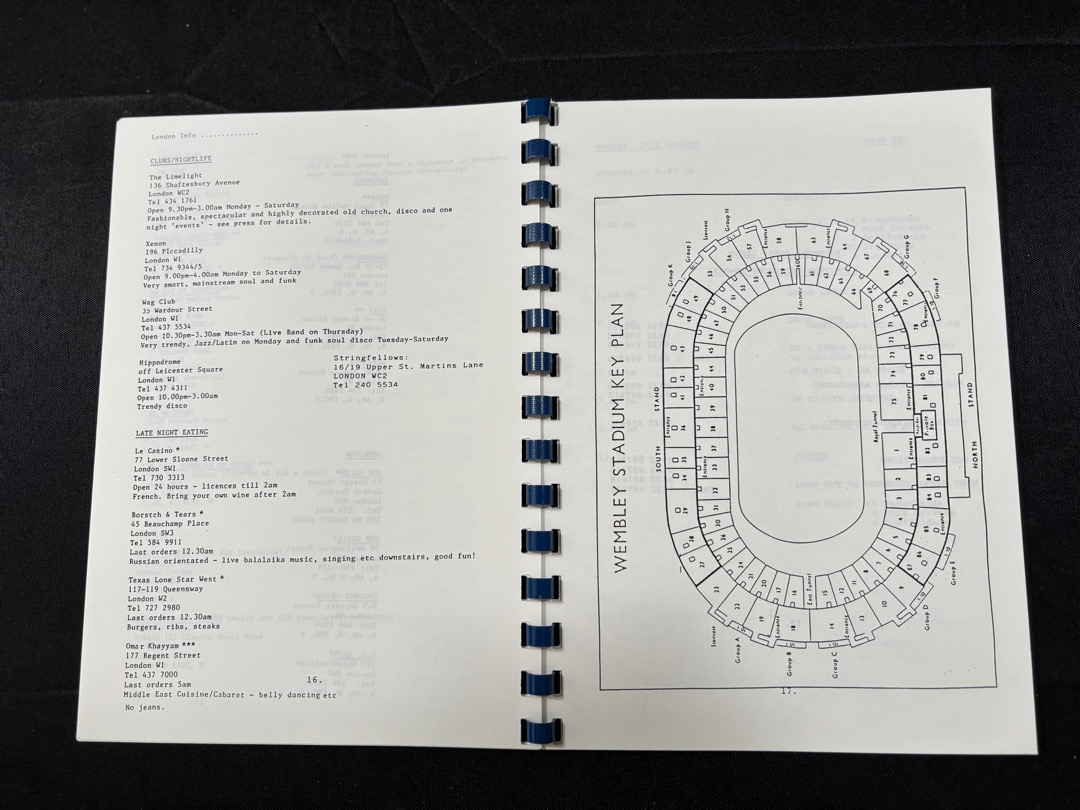 London Info ..............
CLUBS/NIGHTLIFE
The Limelight
136 Shaftesbury Avenue
London WC2
Tel 434 1761
Open 9.30pm-3.00am Monday - Saturday
Fashionable, spectacular and highly decorated old church, disco and one
night 'events' - see press for details.
Xenon
196 PIccadilly
London W1
Tel 734 9344/5
Open 9.00pm-4.00am Monday to Saturday
Very smart, mainstream soul and funk
Wag Club
35 Wardour Street
London W1
Tel 437 5534
Open 10.30pm-3.30am Mon-Sat (Live Band on Thursday)
Very trendy, Jazz/Latin on Monday and funk soul disco Tuesday-Saturday
Hippodrome
off Leicester Square
London W1
Tel 437 4311
Open 10.00pm-3.00am
Trendy disco
Stringfellows:
16/19 Upper St. Martins Lane
LONDON WC2
Tel 240 5534
LATE NIGHT EATING
Le Casino *
77 Lower Sloane Street
London SW1
Tel 730 3313
Open 24 hours - licences till 2am
French. Bring your own wine after 2am
Borstch & Tears *
45 Beauchamp Place
London SW3
Tel 584 9911
Last orders 12.30am
Russian orientated - live balalaika music, singing etc downstairs, good fun!
Texas Lone Star West *
117-119 Queensway
London W2
Tel 727 2980
Last orders 12.30am
Burgers, ribs, steaks
Omar Khayyam ***
177 Regent Street
London W1
Tel 437 7000
Last orders 5am
Middle East Cuisine/Cabaret - belly dancing etc
No jeans.
16.
WEMBLEY STADIUM KEY PLAN
SOUTH STAND
NORTH STAND
Royal Tunnel
East Tunnel
Entrance
Entrance
Entrance
Entrance
Entrance
Entrance
Private Box
Group A
Group B
Group C
Group D
Group E
Group F
Group G
Group H
Group J
Group K
17.